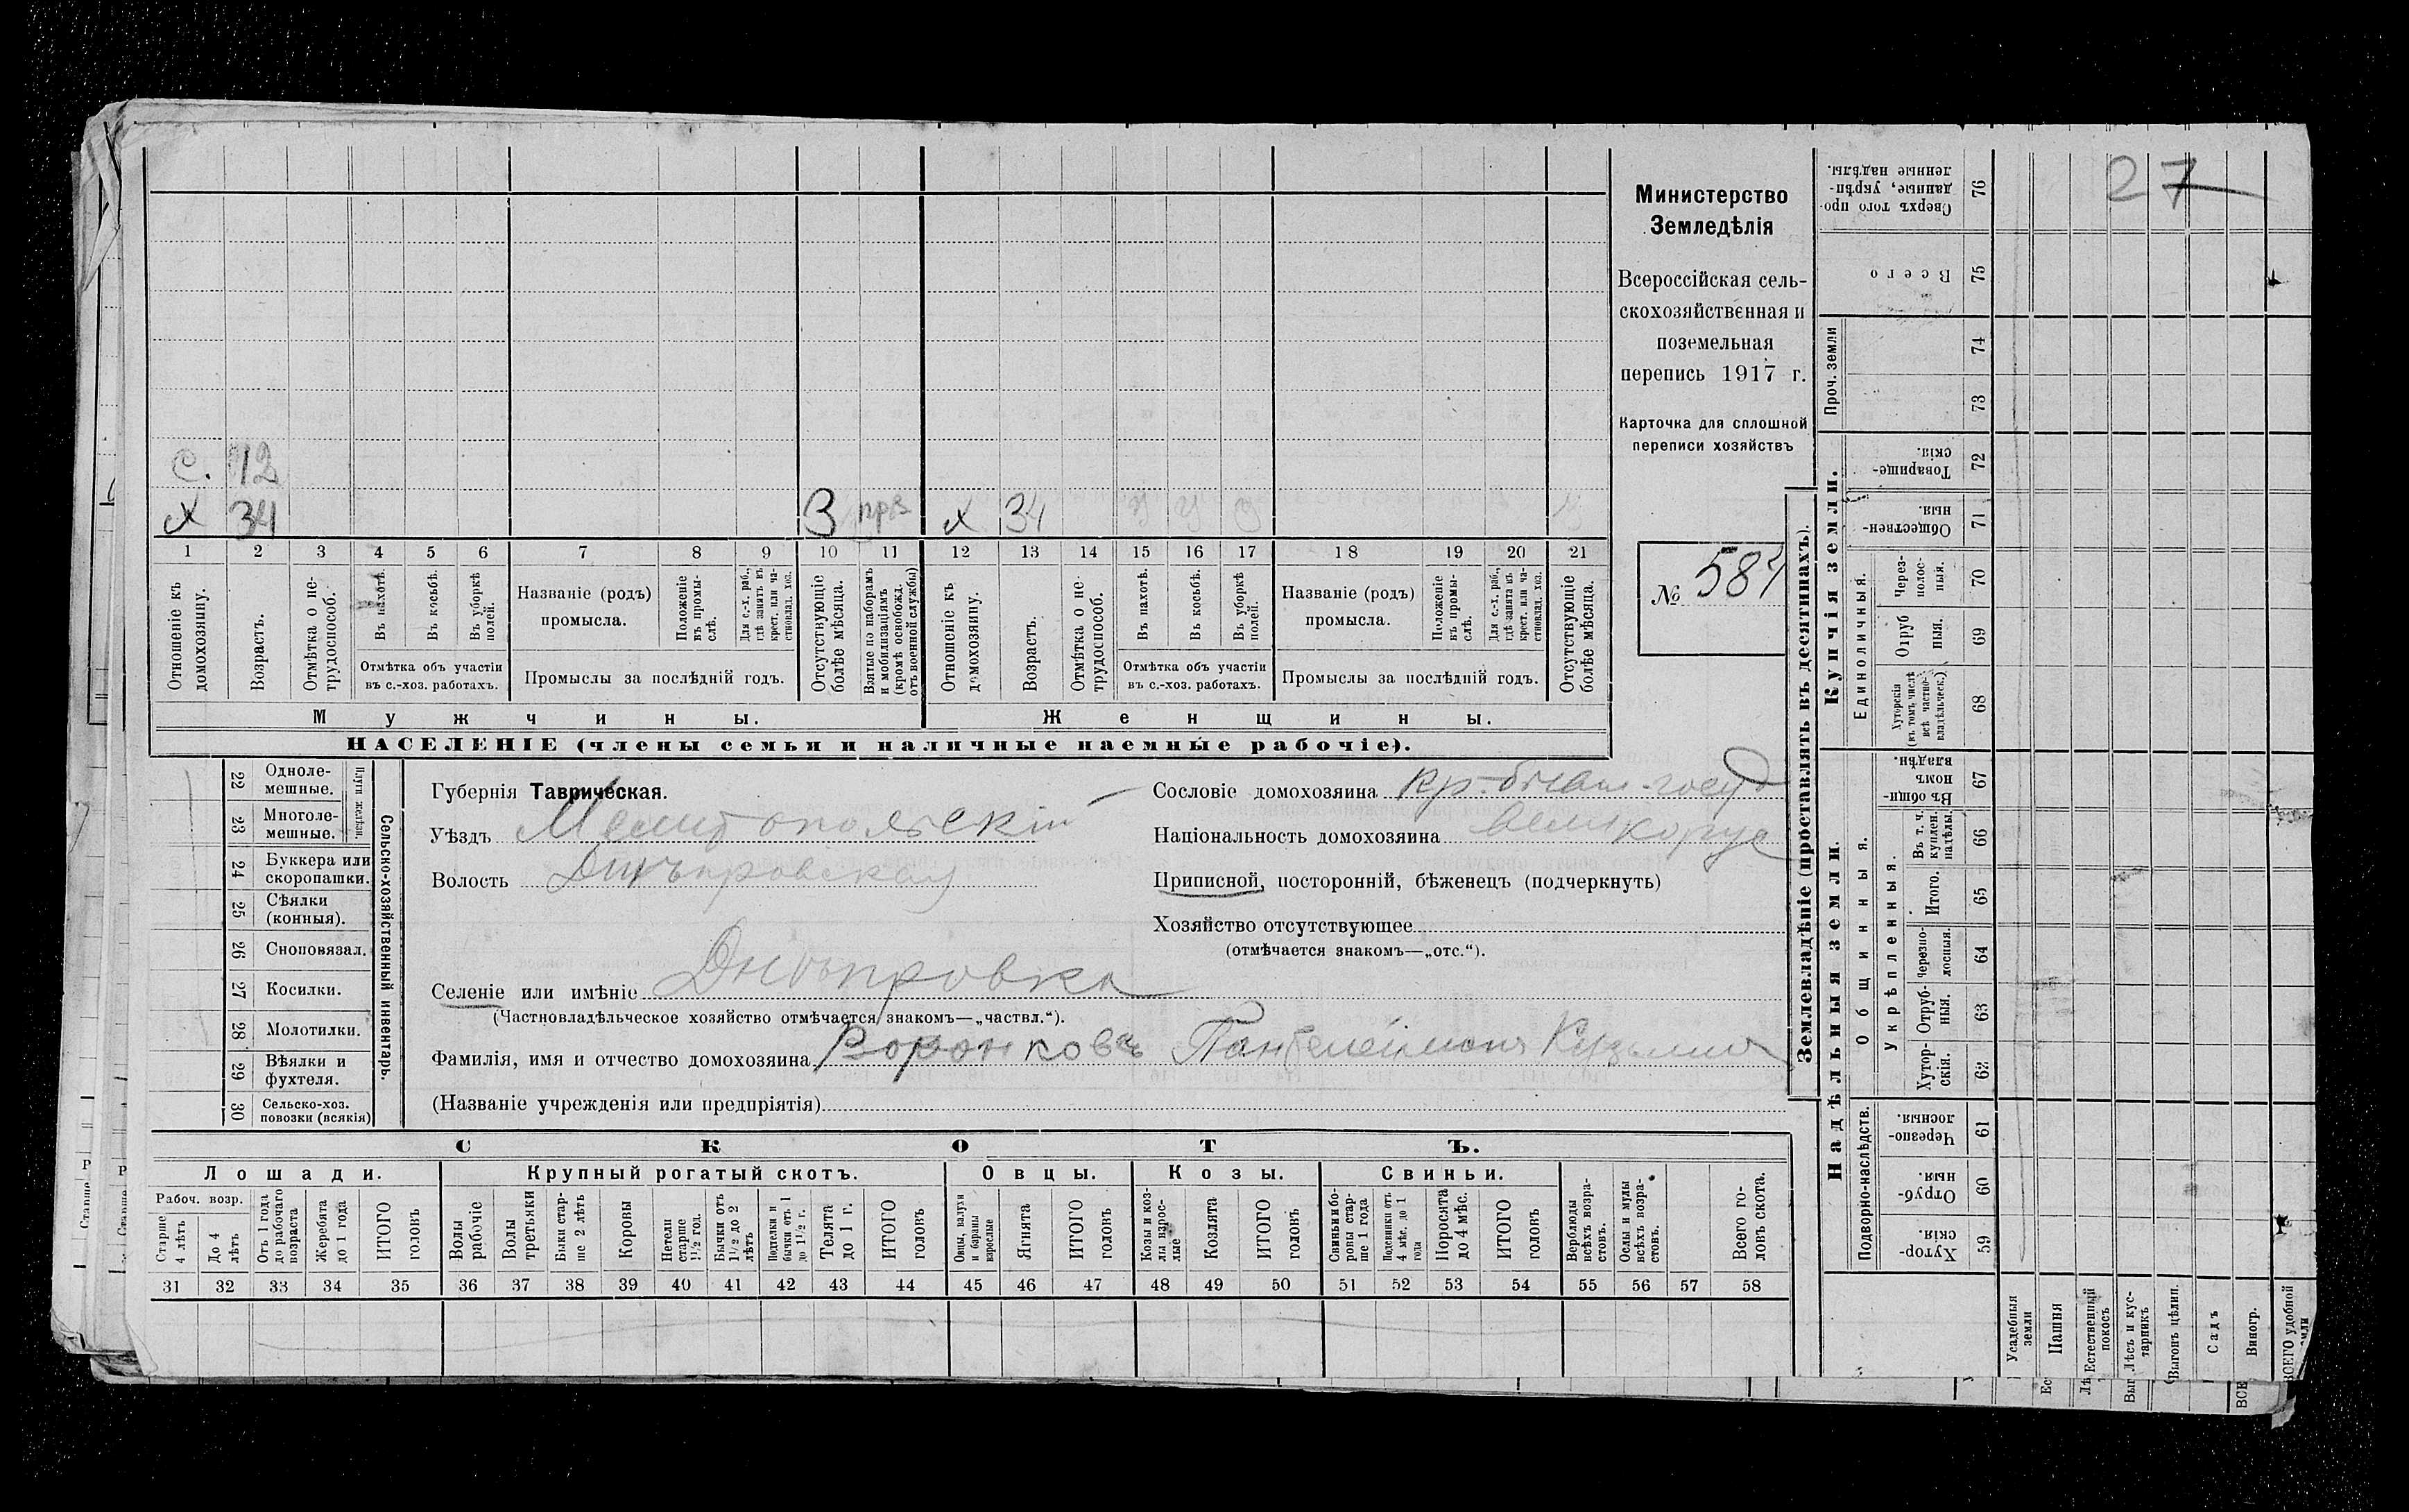 27
С. 12
х 34 3 прз х 34 у у у
1 2 3 4 5 6 7 8 9 10 11 12 13 14 15 16 17 18 19 20 21
Отношеніе къ домохозяину.
Возрастъ.
Отмѣтка о нетрудоспособ.
Въ пахотѣ.
Въ косьбѣ.
Въ уборкѣ полей.
Отмѣтка объ участіи
въ с.-хоз. работахъ.
Названіе (родъ)
промысла.
Положеніе въ промыслѣ.
Для с.-х. раб., гдѣ занятъ въ крест. или частновлад. хоз.
Промыслы за послѣдній годъ.
Отсутствующіе болѣе мѣсяца.
Взятые по наборамъ и мобилизаціямъ (кромѣ освобожд. отъ военной службы)
Отношеніе къ домохозяину.
Возрастъ.
Отмѣтка о нетрудоспособ.
Въ пахотѣ.
Въ косьбѣ.
Въ уборкѣ полей.
Отмѣтка объ участіи
въ с.-хоз. работахъ.
Названіе (родъ)
промысла.
Положеніе въ промыслѣ.
Для с.-х. раб., гдѣ занята въ крест. или частновлад. хоз.
Промыслы за послѣдній годъ.
Отсутствующіе болѣе мѣсяца.
Мужчины. Женщины.
НАСЕЛЕНІЕ (члены семьи и наличные наемные рабочіе).
Министерство
Земледѣлія
Всероссійская сель-
скохозяйственная и
поземельная
перепись 1917 г.
Карточка для сплошной
переписи хозяйствъ
№ 584
22 Однолемешные.
23 Многолемешные.
Плуги желѣзн.
24 Буккера или скоропашки.
25 Сѣялки (конныя).
26 Сноповязал.
27 Косилки.
28 Молотилки.
29 Вѣялки и фухтеля.
30 Сельско-хоз. повозки (всякія)
Сельско-хозяйственный инвентарь.
Губернія Таврическая.
Уѣздъ Мелитопольскій
Волость Днѣпровская
Селеніе или имѣніе Днѣпровка
(Частновладѣльческое хозяйство отмѣчается знакомъ—„частвл.“).
Фамилія, имя и отчество домохозяина Воронковъ Пантелеймонъ Кузьмичъ
(Названіе учрежденія или предпріятія)
Сословіе домохозяина кр. бывш. госуд
Національность домохозяина великорус
Приписной, посторонній, бѣженецъ (подчеркнуть)
Хозяйство отсутствующее
(отмѣчается знакомъ—„отс.“).
СКОТЪ.
Лошади. Крупный рогатый скотъ. Овцы. Козы. Свиньи.
Рабоч. возр.
Старше 4 лѣтъ
До 4 лѣтъ
Отъ 1 года до рабочаго возраста
Жеребята до 1 года
ИТОГО головъ
Волы рабочіе
Волы третьяки
Быки старше 2 лѣтъ
Коровы
Нетели старше 1½ год.
Бычки отъ 1½ до 2 лѣтъ
Подтелки и бычки отъ 1 до 1½ г.
Телята до 1 г.
ИТОГО головъ
Овцы, валухи и бараны взрослые
Ягнята
ИТОГО головъ
Козы и козлы взрослые
Козлята
ИТОГО головъ
Свиньи и боровы старше 1 года
Подсвинки отъ 4 мѣс. до 1 года
Поросята до 4 мѣс.
ИТОГО головъ
Верблюды всѣхъ возрастовъ.
Ослы и мулы всѣхъ возрастовъ.
Всего головъ скота.
31 32 33 34 35 36 37 38 39 40 41 42 43 44 45 46 47 48 49 50 51 52 53 54 55 56 57 58
Землевладѣніе (проставлять въ десятинахъ).
Купчія земли.
Надѣльныя земли.
Сверхъ того проданные, укрѣпленные надѣлы. 76
Всего 75
Проч. земли 74 73
Товарищескія. 72
Общественныя. 71
Единоличныя.
Черезполосныя. 70
Отрубныя. 69
Хуторскія (въ томъ числѣ всѣ частновладѣльческ.) 68
Общинныя.
Въ общинномъ владѣн. 67
Укрѣпленныя.
Въ т. ч. куплен. надѣлы. 66
Итого. 65
Черезполосныя. 64
Отрубныя. 63
Хуторскія. 62
Подворно-наслѣдств.
Черезполосныя. 61
Отрубныя. 60
Хуторскія. 59
Усадебныя земли
Пашня
Естественный покосъ
Лѣсъ и кустарникъ
Выгонъ цѣлин.
Садъ
Виногр.
ВСЕГО удобной